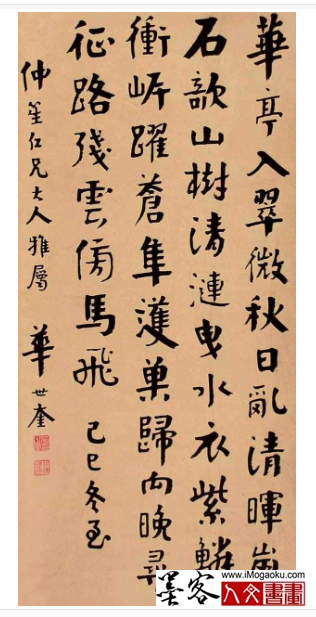 華亭入翠微秋日亂清暉崩
石欹山樹清漣曳水衣紫鱗
衝岸躍蒼隼護巢歸向晚尋
征路殘雲傍馬飛 己巳冬至
仲笙仁兄大人雅屬 華世奎
墨客
www.iMogaoku.com